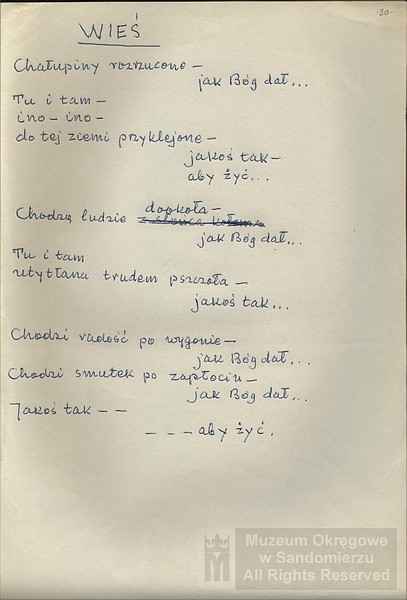 20.
WIEŚ
Chałupiny rozrzucone –
jak Bóg dał...
Tu i tam –
ino – ino –
do tej ziemi przyklejone –
jakoś tak –
aby żyć...
dookoła –
Chodzą ludzie z słońca kołem
jak Bóg dał...
Tu i tam
utytłana trudem pszczoła –
jakoś tak...
Chodzi radość po wygonie –
jak Bóg dał...
Chodzi smutek po zapłociu –
jak Bóg dał...
Jakoś tak – –
– – – aby żyć.
Muzeum Okręgowe
w Sandomierzu
All Rights Reserved